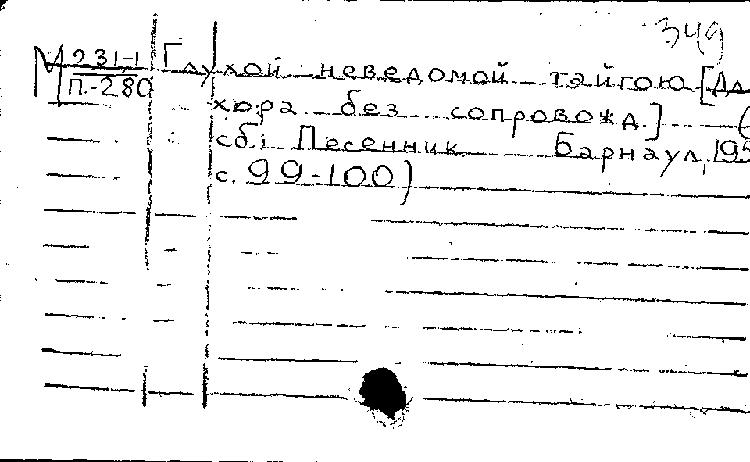 349
М 231-1 Глухой неведомой тайгою [Дл
П.-280 хора без сопровожд.] (
сб.: Песенник Барнаул, 195
с. 99-100)